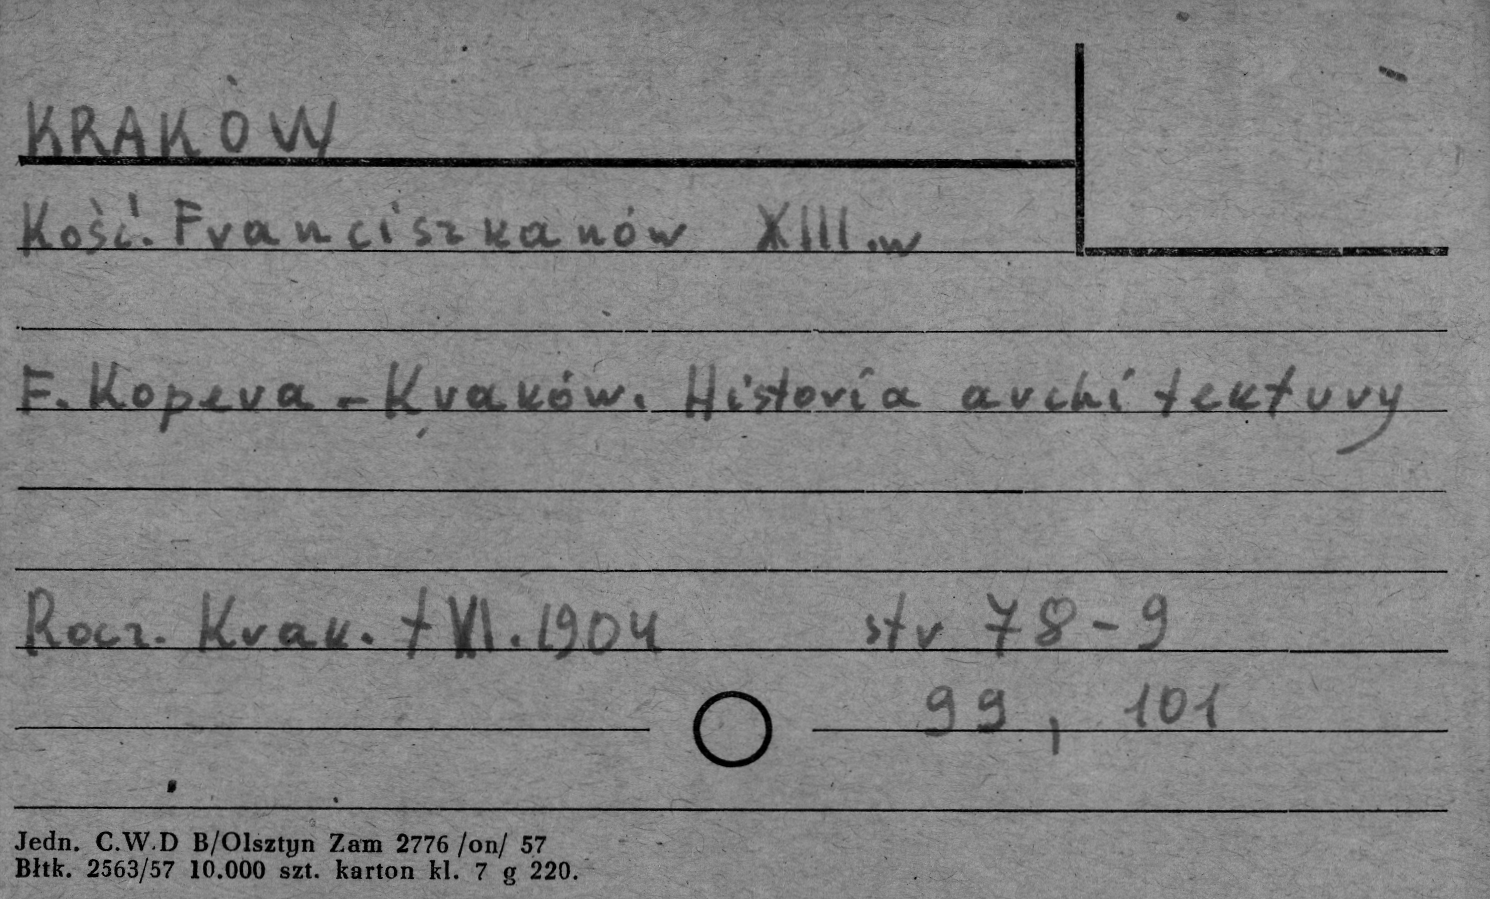 KRAKÓW
Kość. Franciszkanów XIII.w
F. Kopera - Kraków. Historia architektury
Rocz. Krak. t VI. 1904 str 78-9
99, 101
Jedn. C.W.D B/Olsztyn Zam 2776 /on/ 57
Błtk. 2563/57 10.000 szt. karton kl. 7 g 220.